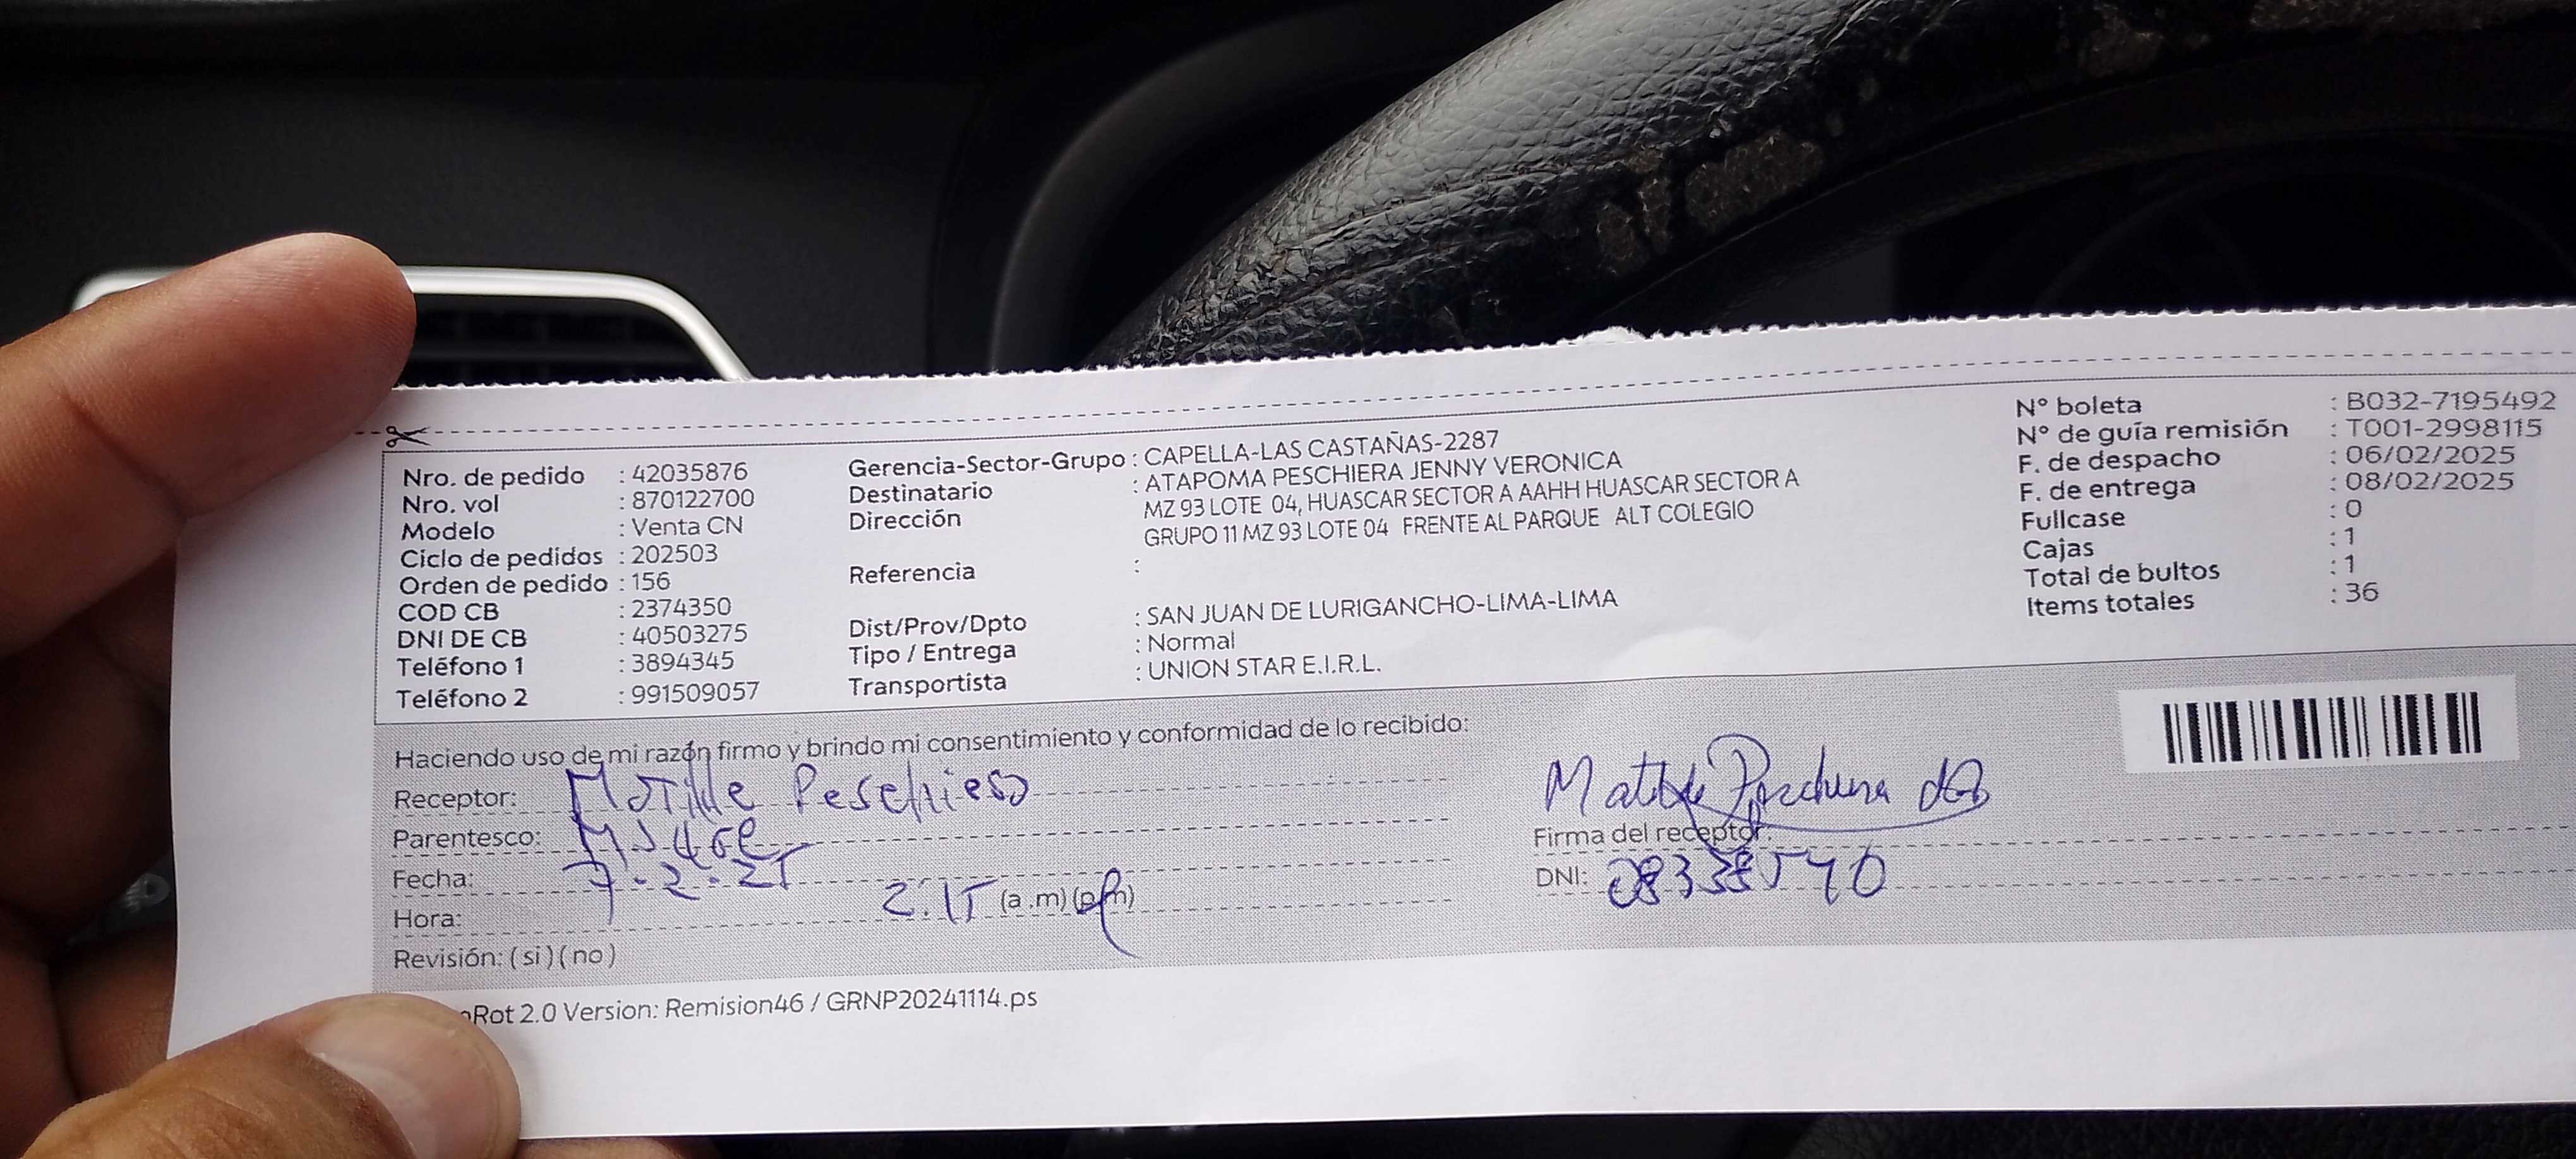 Nro. de pedido : 42035876
Nro. vol : 870122700
Modelo : Venta CN
Ciclo de pedidos : 202503
Orden de pedido : 156
COD CB : 2374350
DNI DE CB : 40503275
Teléfono 1 : 3894345
Teléfono 2 : 991509057
Gerencia-Sector-Grupo : CAPELLA-LAS CASTAÑAS-2287
Destinatario : ATAPOMA PESCHIERA JENNY VERONICA
Dirección MZ 93 LOTE 04, HUASCAR SECTOR A AAHH HUASCAR SECTOR A
GRUPO 11 MZ 93 LOTE 04 FRENTE AL PARQUE ALT COLEGIO
Referencia :
Dist/Prov/Dpto : SAN JUAN DE LURIGANCHO-LIMA-LIMA
Tipo / Entrega : Normal
Transportista : UNION STAR E.I.R.L.
N° boleta : B032-7195492
N° de guía remisión : T001-2998115
F. de despacho : 06/02/2025
F. de entrega : 08/02/2025
Fullcase : 0
Cajas : 1
Total de bultos : 1
Items totales : 36
Haciendo uso de mi razón firmo y brindo mi consentimiento y conformidad de lo recibido:
Receptor: Matilde Peschiera
Parentesco:
Fecha: 7-2-25
Hora: 2:15 (a .m) (p.m)
Revisión: ( si ) ( no )
Matilde
Firma del receptor:
DNI:
Rot 2.0 Version: Remision46 / GRNP20241114.ps